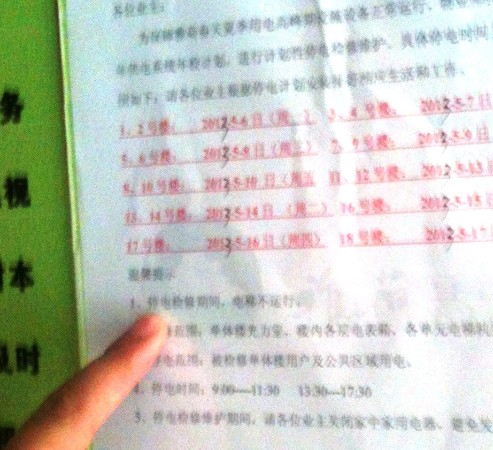 务
视
本
时
各位业主:
为保障葡萄春天夏季用电高峰期设备正常运行,
年供电系统年检计划,进行计划性停电检修维护。具体停电时间
例如下:请各位业主根据停电计划安排
生活和工作。
1、2号楼: 2013-5-6日(周一) 3、4号楼: 2013-5-7日
5、6号楼: 2013-5-8日(周三) 7、9号楼: 2013-5-9日
8、10号楼: 2013-5-10日(周五 11、12号楼: 2013-5-13日
13、14号楼: 2013-5-14日(周二) 16号楼: 2013-5-15日
17号楼: 2013-5-16日(周四) 18号楼: 2013-5-17日
温馨提示:
1、停电检修期间,电梯不运行。
范围:单体楼光力室、楼内各层电表箱、各单元电梯机
停电范围:被检修单体楼用户及公共区域用电。
4、停电时间:9:00---11:30 13:30---17:30
5、停电检修维护期间,请各位业主关闭家中家用电器、避免发